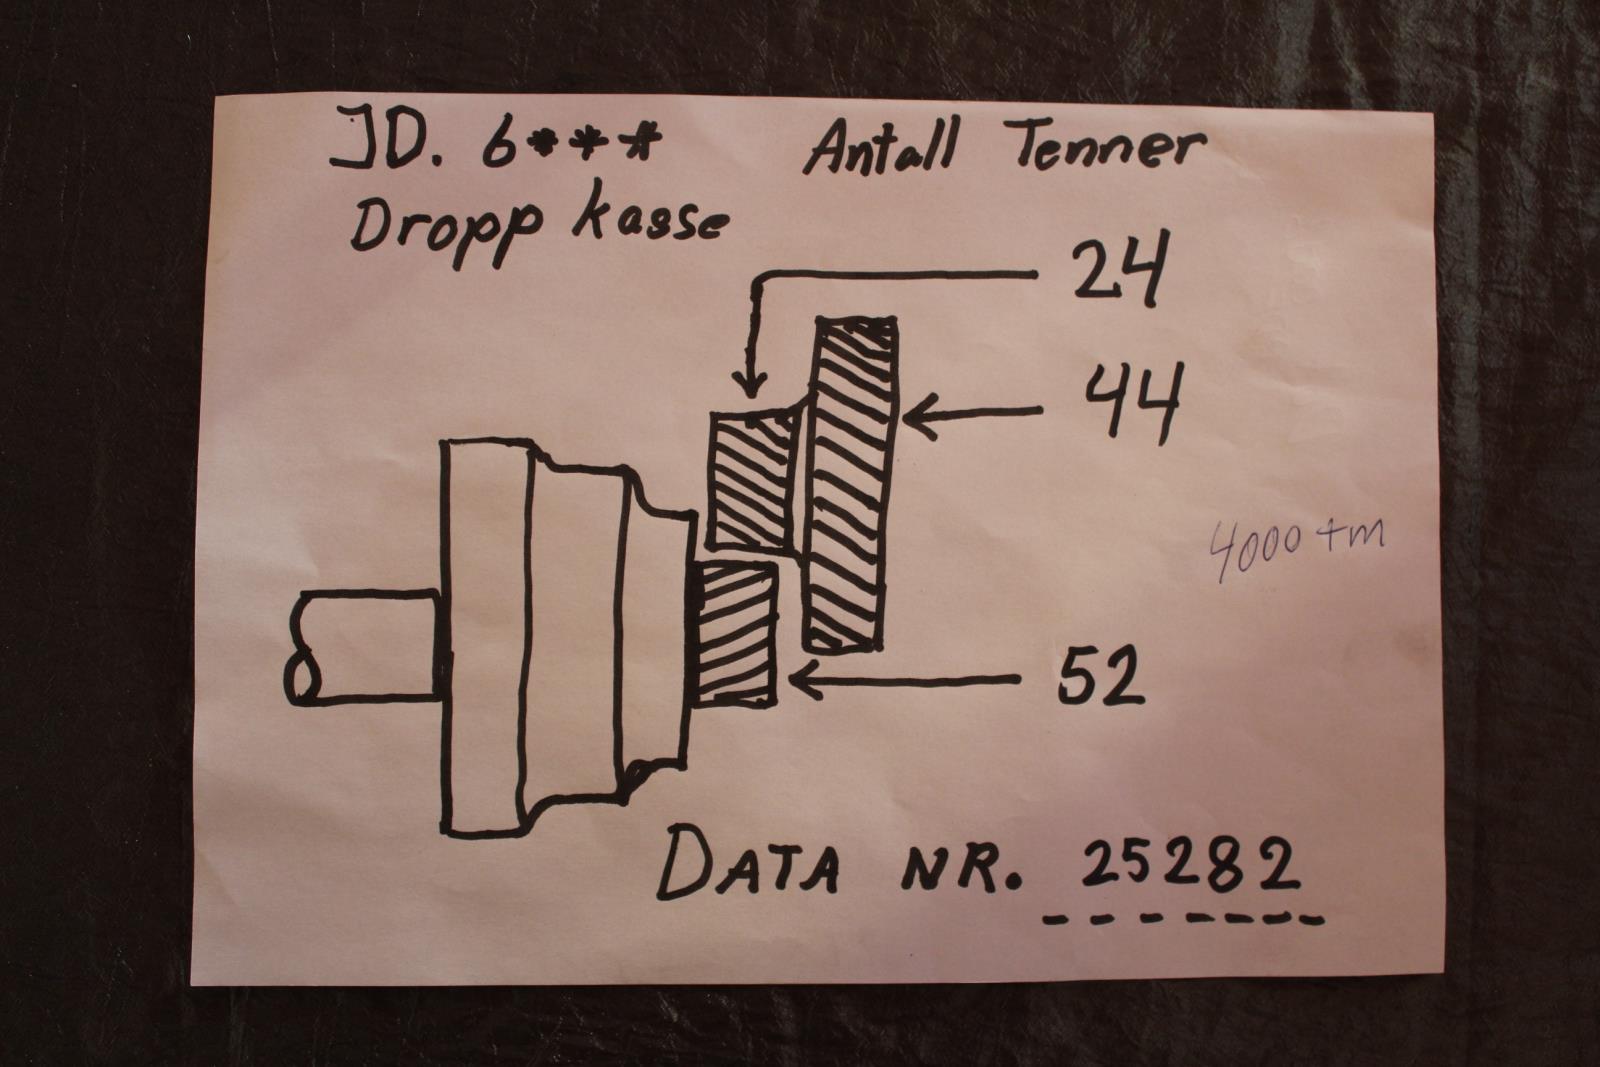 JD. 6***
Antall Tenner
Dropp kasse
24
44
4000 tm
52
DATA NR. 25282